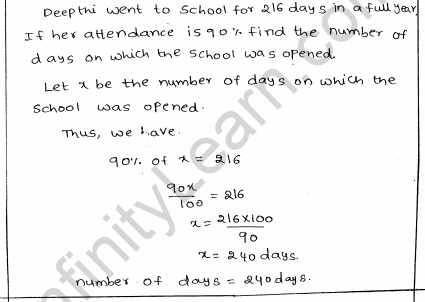 Deepthi went to School for 216 days in a full year.
If her attendance is 90% find the number of
days on which the School was opened.
Let x be the number of days on which the
School was opened.
Thus, we have.
90% of x = 216
90x/100 = 216
x = 216×100/90
x = 240 days.
number of days = 240 days.
InfinityLearn.com